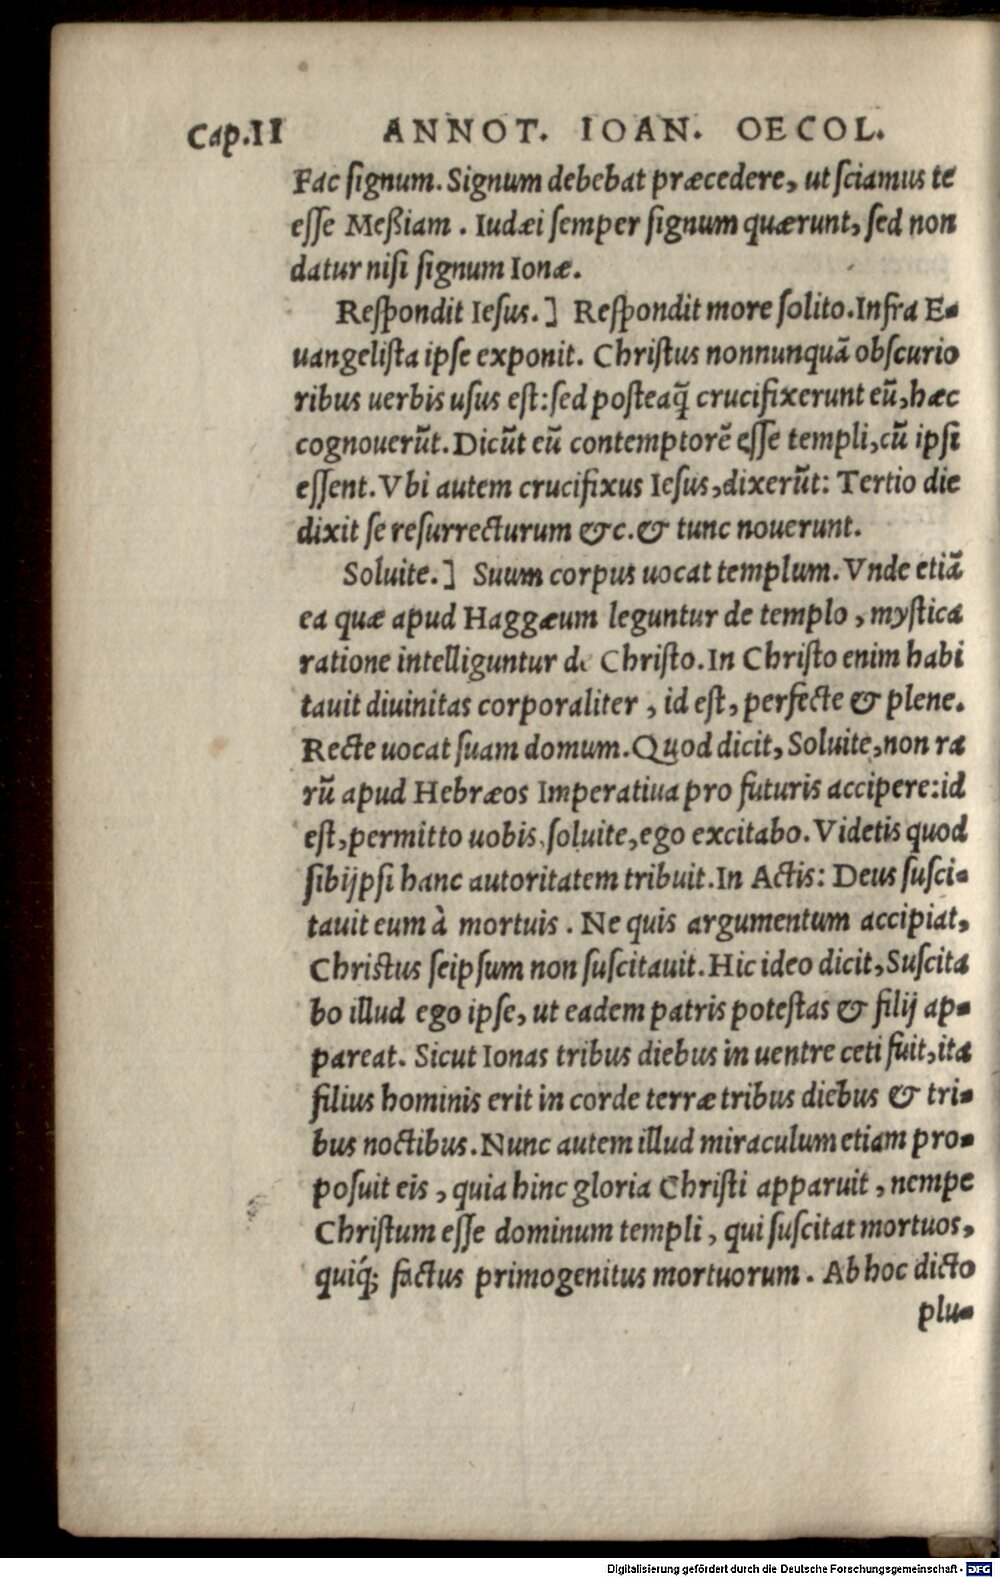 Cap.II ANNOT. IOAN. OECOL.
Fac ſignum. Signum debebat præcedere, ut ſciamus te
eſſe Meßiam. Iudæi ſemper ſignum quærunt, ſed non
datur niſi ſignum Ionæ.
Reſpondit Ieſus.] Reſpondit more ſolito. Infra E-
uangeliſta ipſe exponit. Chriſtus nonnunquā obſcurio
ribus uerbis uſus eſt: ſed poſteaq̃ crucifixerunt eū, hæc
cognouerūt. Dicūt eū contemptorē eſſe templi, cū ipſi
eſſent. Vbi autem crucifixus Ieſus, dixerūt: Tertio die
dixit ſe reſurrecturum &c. & tunc nouerunt.
Soluite.] Suum corpus uocat templum. Vnde etiā
ea quæ apud Haggæum leguntur de templo, myſtica
ratione intelliguntur de Chriſto. In Chriſto enim habi
tauit diuinitas corporaliter, id eſt, perfecte & plene.
Recte uocat ſuam domum. Quod dicit, Soluite, non ra
rū apud Hebræos Imperatiua pro futuris accipere: id
eſt, permitto uobis, ſoluite, ego excitabo. Videtis quod
ſibijpſi hanc autoritatem tribuit. In Actis: Deus ſuſci-
tauit eum à mortuis. Ne quis argumentum accipiat,
Chriſtus ſeipſum non ſuſcitauit. Hic ideo dicit, Suſcita
bo illud ego ipſe, ut eadem patris poteſtas & filij ap-
pareat. Sicut Ionas tribus diebus in uentre ceti fuit, ita
filius hominis erit in corde terræ tribus diebus & tri-
bus noctibus. Nunc autem illud miraculum etiam pro-
poſuit eis, quia hinc gloria Chriſti apparuit, nempe
Chriſtum eſſe dominum templi, qui ſuſcitat mortuos,
quiq́; factus primogenitus mortuorum. Ab hoc dicto
plu-
Digitalisierung gefördert durch die Deutsche Forschungsgemeinschaft - DFG